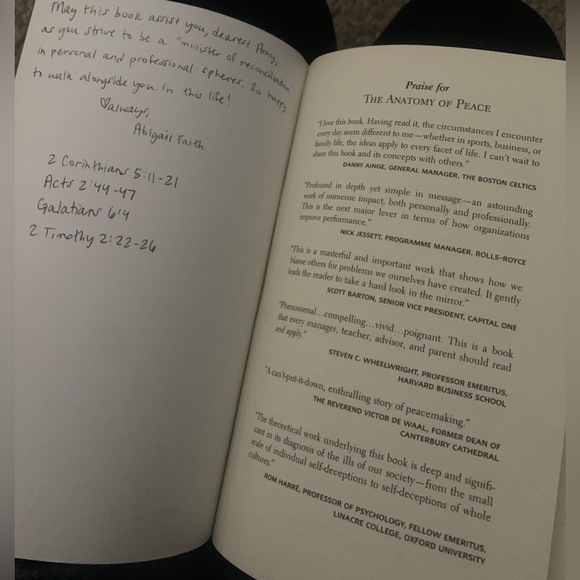 May this book assist you, dearest Pony,
as you strive to be a "minister of reconciliation"
in personal and professional spheres. So happy
to walk alongside you in this life!
♡always,
Abigail Faith
2 Corinthians 5:11-21
Acts 2:44-47
Galatians 6:9
2 Timothy 2:22-26
Praise for
THE ANATOMY OF PEACE
"I love this book. Having read it, the circumstances I encounter
every day seem different to me—whether in sports, business, or
family life, the ideas apply to every facet of life. I can't wait to
share this book and its concepts with others."
DANNY AINGE, GENERAL MANAGER, THE BOSTON CELTICS
"Profound in depth yet simple in message—an astounding
work of immense impact, both personally and professionally.
This is the next major lever in terms of how organizations
improve performance."
NICK JESSETT, PROGRAMME MANAGER, ROLLS-ROYCE
"This is a masterful and important work that shows how we
blame others for problems we ourselves have created. It gently
leads the reader to take a hard look in the mirror."
SCOTT BARTON, SENIOR VICE PRESIDENT, CAPITAL ONE
"Phenomenal…compelling…vivid…poignant. This is a book
that every manager, teacher, advisor, and parent should read
and apply."
STEVEN C. WHEELWRIGHT, PROFESSOR EMERITUS,
HARVARD BUSINESS SCHOOL
"A can't-put-it-down, enthralling story of peacemaking."
THE REVEREND VICTOR DE WAAL, FORMER DEAN OF
CANTERBURY CATHEDRAL
"The theoretical work underlying this book is deep and signifi-
cant in its diagnosis of the ills of our society—from the small
scale of individual self-deceptions to self-deceptions of whole
cultures."
ROM HARRÉ, PROFESSOR OF PSYCHOLOGY, FELLOW EMERITUS,
LINACRE COLLEGE, OXFORD UNIVERSITY